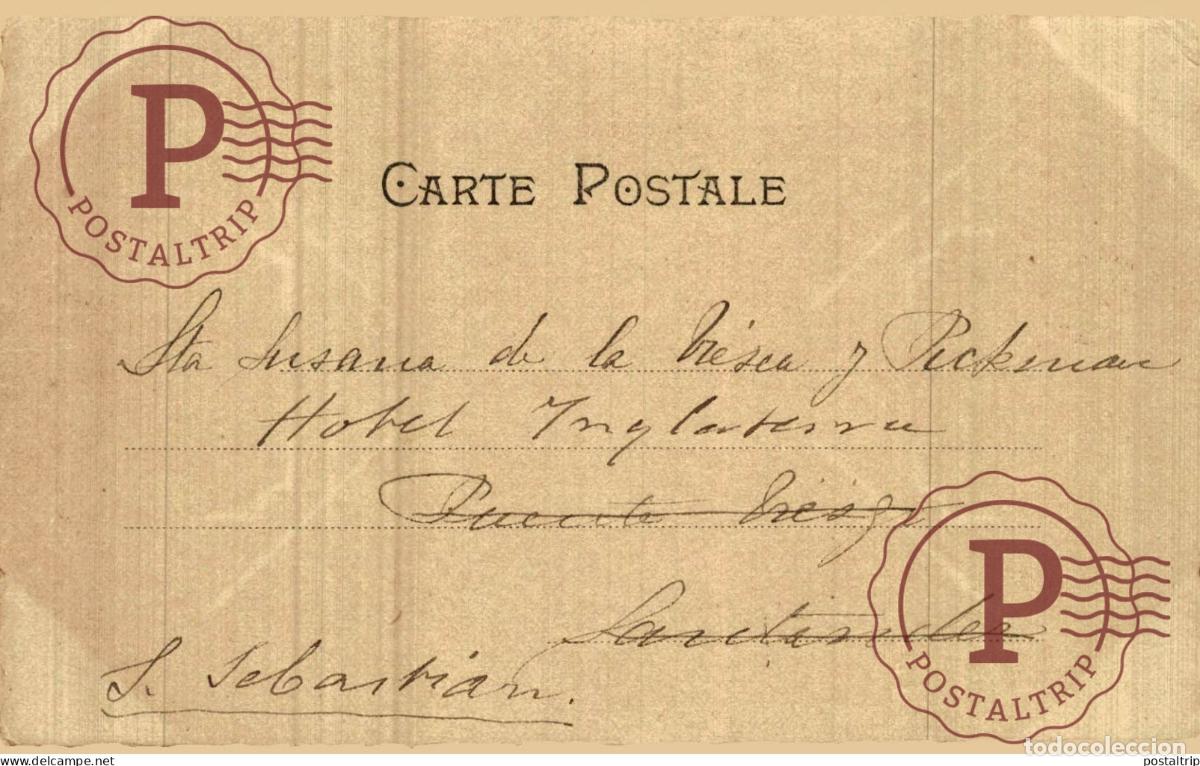 P
POSTALTRIP
CARTE POSTALE
Sta Susana de la Viesca y Pickman
Hotel Inglaterra
Puente Viesgo
Santander
S. Sebastián.
P
POSTALTRIP
todocoleccion
www.delcampe.net
postaltrip